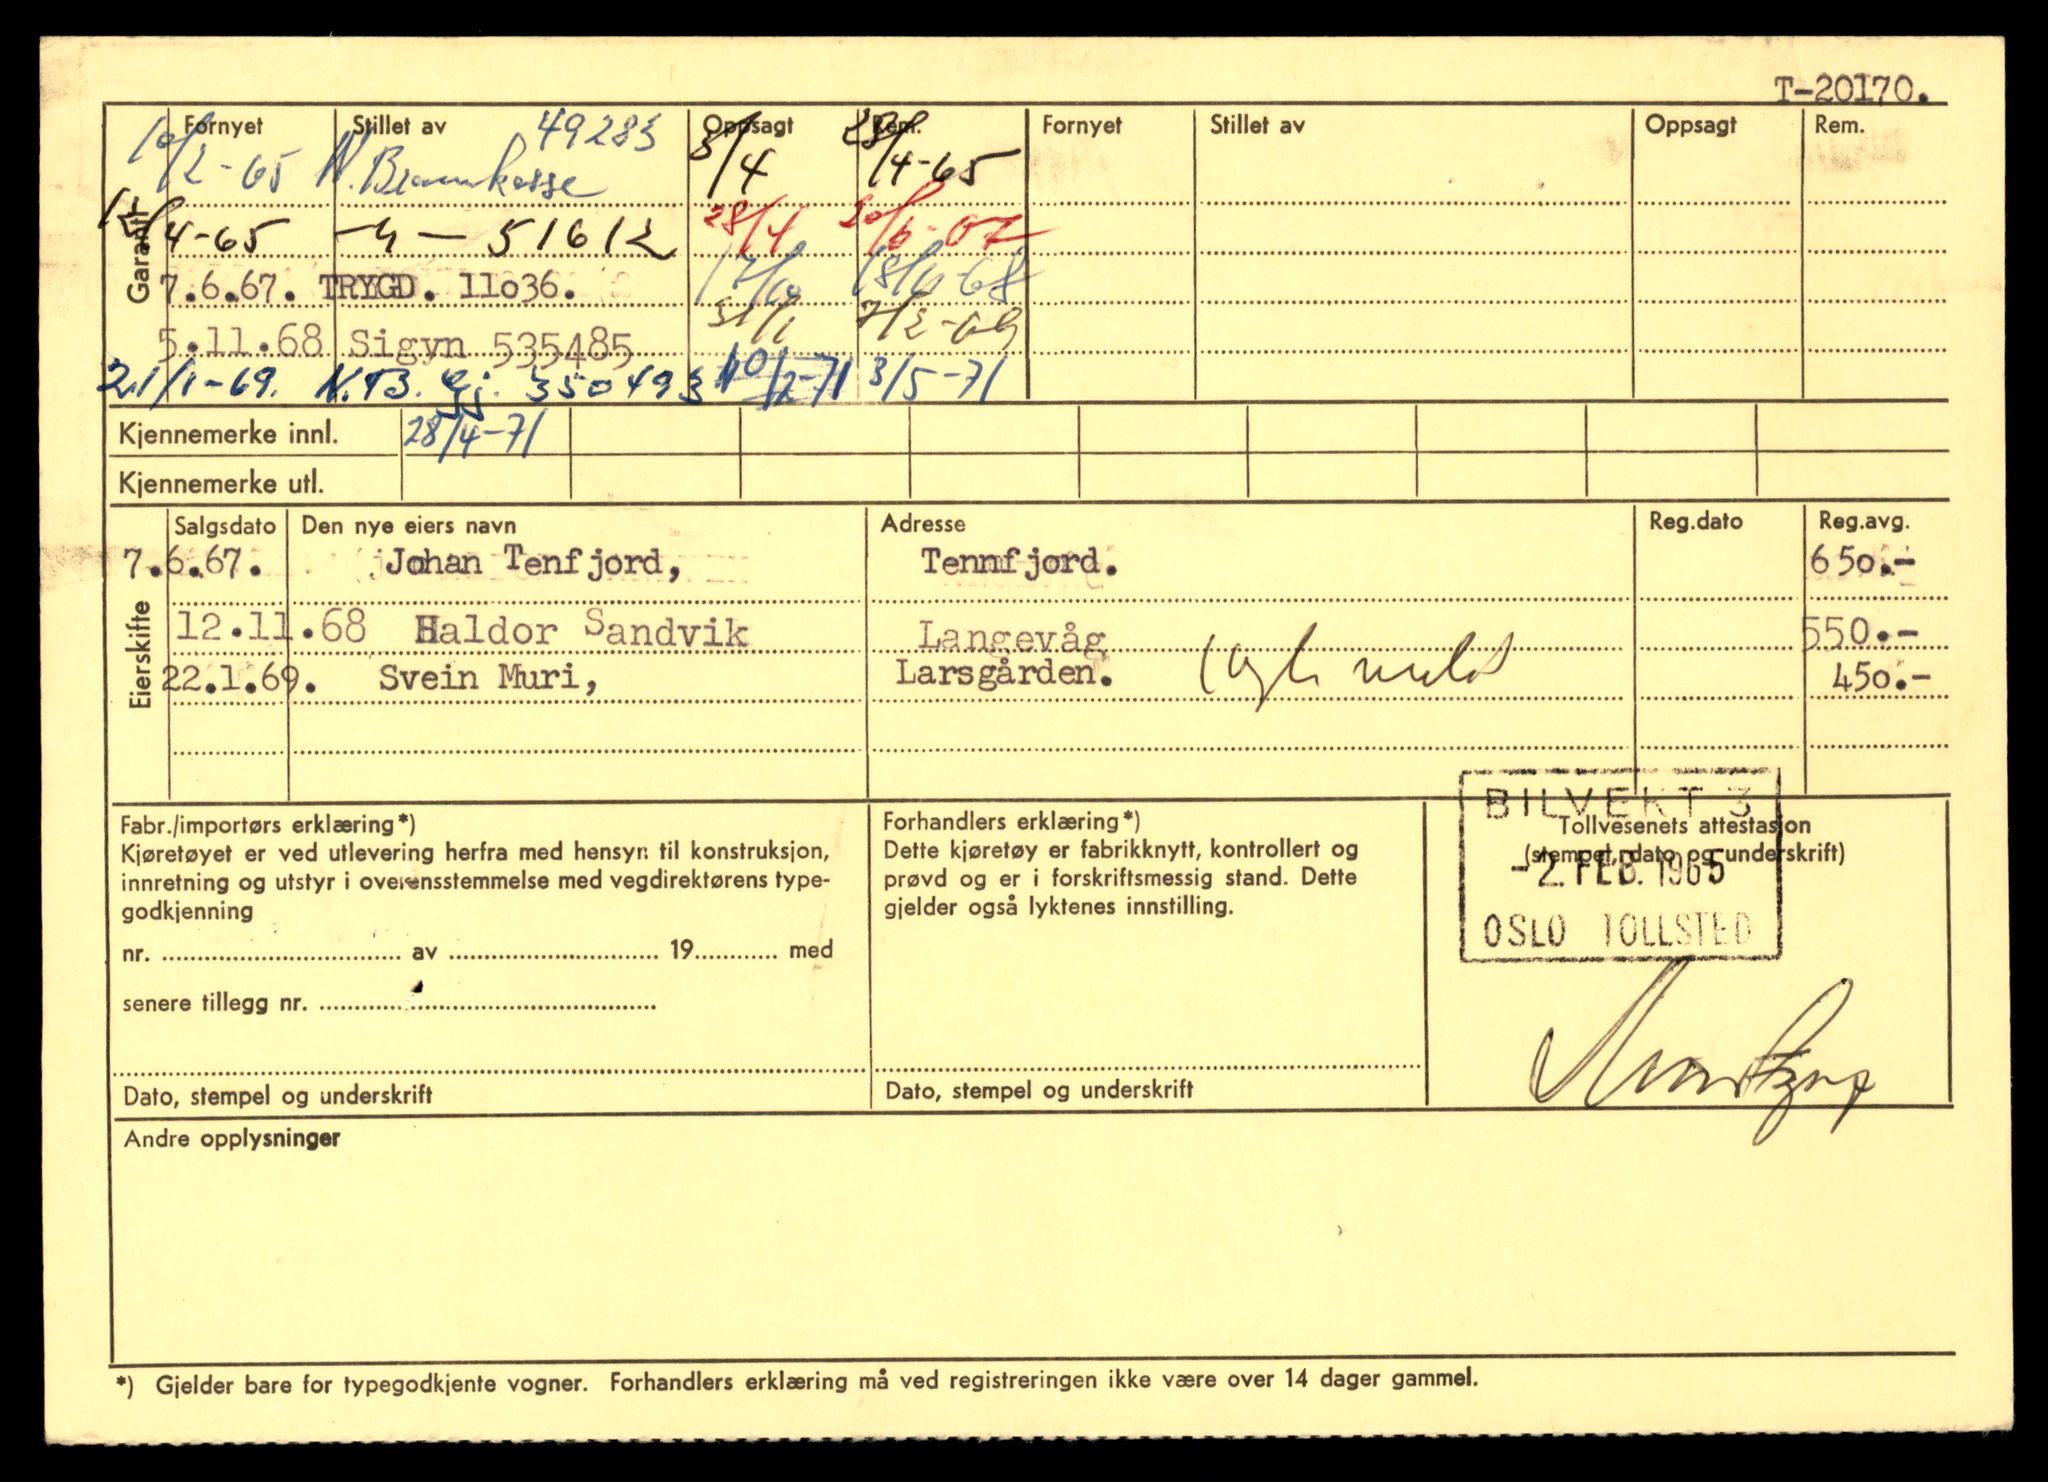 T-20170.
Garanti
Fornyet Stillet av Oppsagt Rem. Fornyet Stillet av Oppsagt Rem.
10/2-65 N. Brannkasse 49283 3/4 28/4-65
/4-65 -"- 51612 28/4
7.6.67. TRYGD. 11036. 17/10
5.11.68 Sigyn 535485 31/1 7/2-69
21/1-69. N.B. Gj. 350493 10/2-71 3/5-71
Kjennemerke innl. 28/4-71
Kjennemerke utl.
Eierskifte
Salgsdato Den nye eiers navn Adresse Reg.dato Reg.avg.
7.6.67. Johan Tenfjord, Tennfjord. 650.-
12.11.68 Haldor Sandvik Langevåg 550.-
22.1.69. Svein Muri, Larsgården. 450.-
Fabr./importørs erklæring*)
Kjøretøyet er ved utlevering herfra med hensyn til konstruksjon,
innretning og utstyr i overensstemmelse med vegdirektørens type-
godkjenning
nr. .......... av .......... 19.......... med
senere tillegg nr. ..........
Dato, stempel og underskrift
Forhandlers erklæring*)
Dette kjøretøy er fabrikknytt, kontrollert og
prøvd og er i forskriftsmessig stand. Dette
gjelder også lyktenes innstilling.
Dato, stempel og underskrift
BILVEKT 3
Tollvesenets attestasjon
(stempel, dato og underskrift)
-2. FEB. 1965
OSLO TOLLSTED
Andre opplysninger
*) Gjelder bare for typegodkjente vogner. Forhandlers erklæring må ved registreringen ikke være over 14 dager gammel.